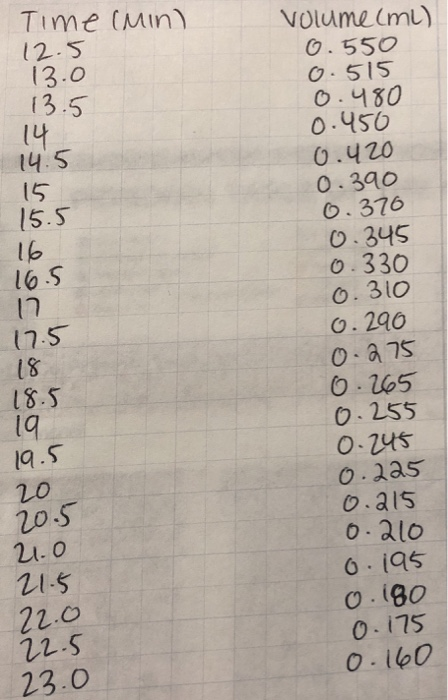 Time (Min) Volume (mL)
12.5 0.550
13.0 0.515
13.5 0.480
14 0.450
14.5 0.420
15 0.390
15.5 0.370
16 0.345
16.5 0.330
17 0.310
17.5 0.290
18 0.275
18.5 0.265
19 0.255
19.5 0.245
20 0.225
20.5 0.215
21.0 0.210
21.5 0.195
22.0 0.180
22.5 0.175
23.0 0.160